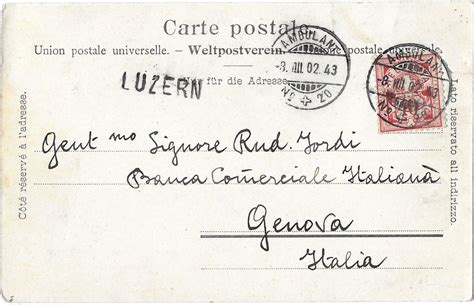 Carte postale.
Union postale universelle. – Weltpostverein. – Unione postale universale.
Nur für die Adresse.
LUZERN
AMBULANT
-8. III. 02. 43
No 20
AMBULANT
-8. III. 02. 43
No
Gent mo Signore Rud. Jordi
Banca Comerciale Italianà
Genova
Italia
Côté réservé à l'adresse.
Lato riservato all indirizzo.